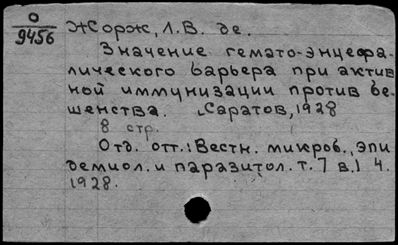 О
9456
Жорж, Л. В. де.
Значение гемато-энцефа-
лического барьера при актив
ной иммунизации против бе-
шенства. Саратов, 1928
8 стр.
Отд. отт.: Вестн. микроб., эпи
демиол. и паразитол. т. 7 в. 1 4.
1928.